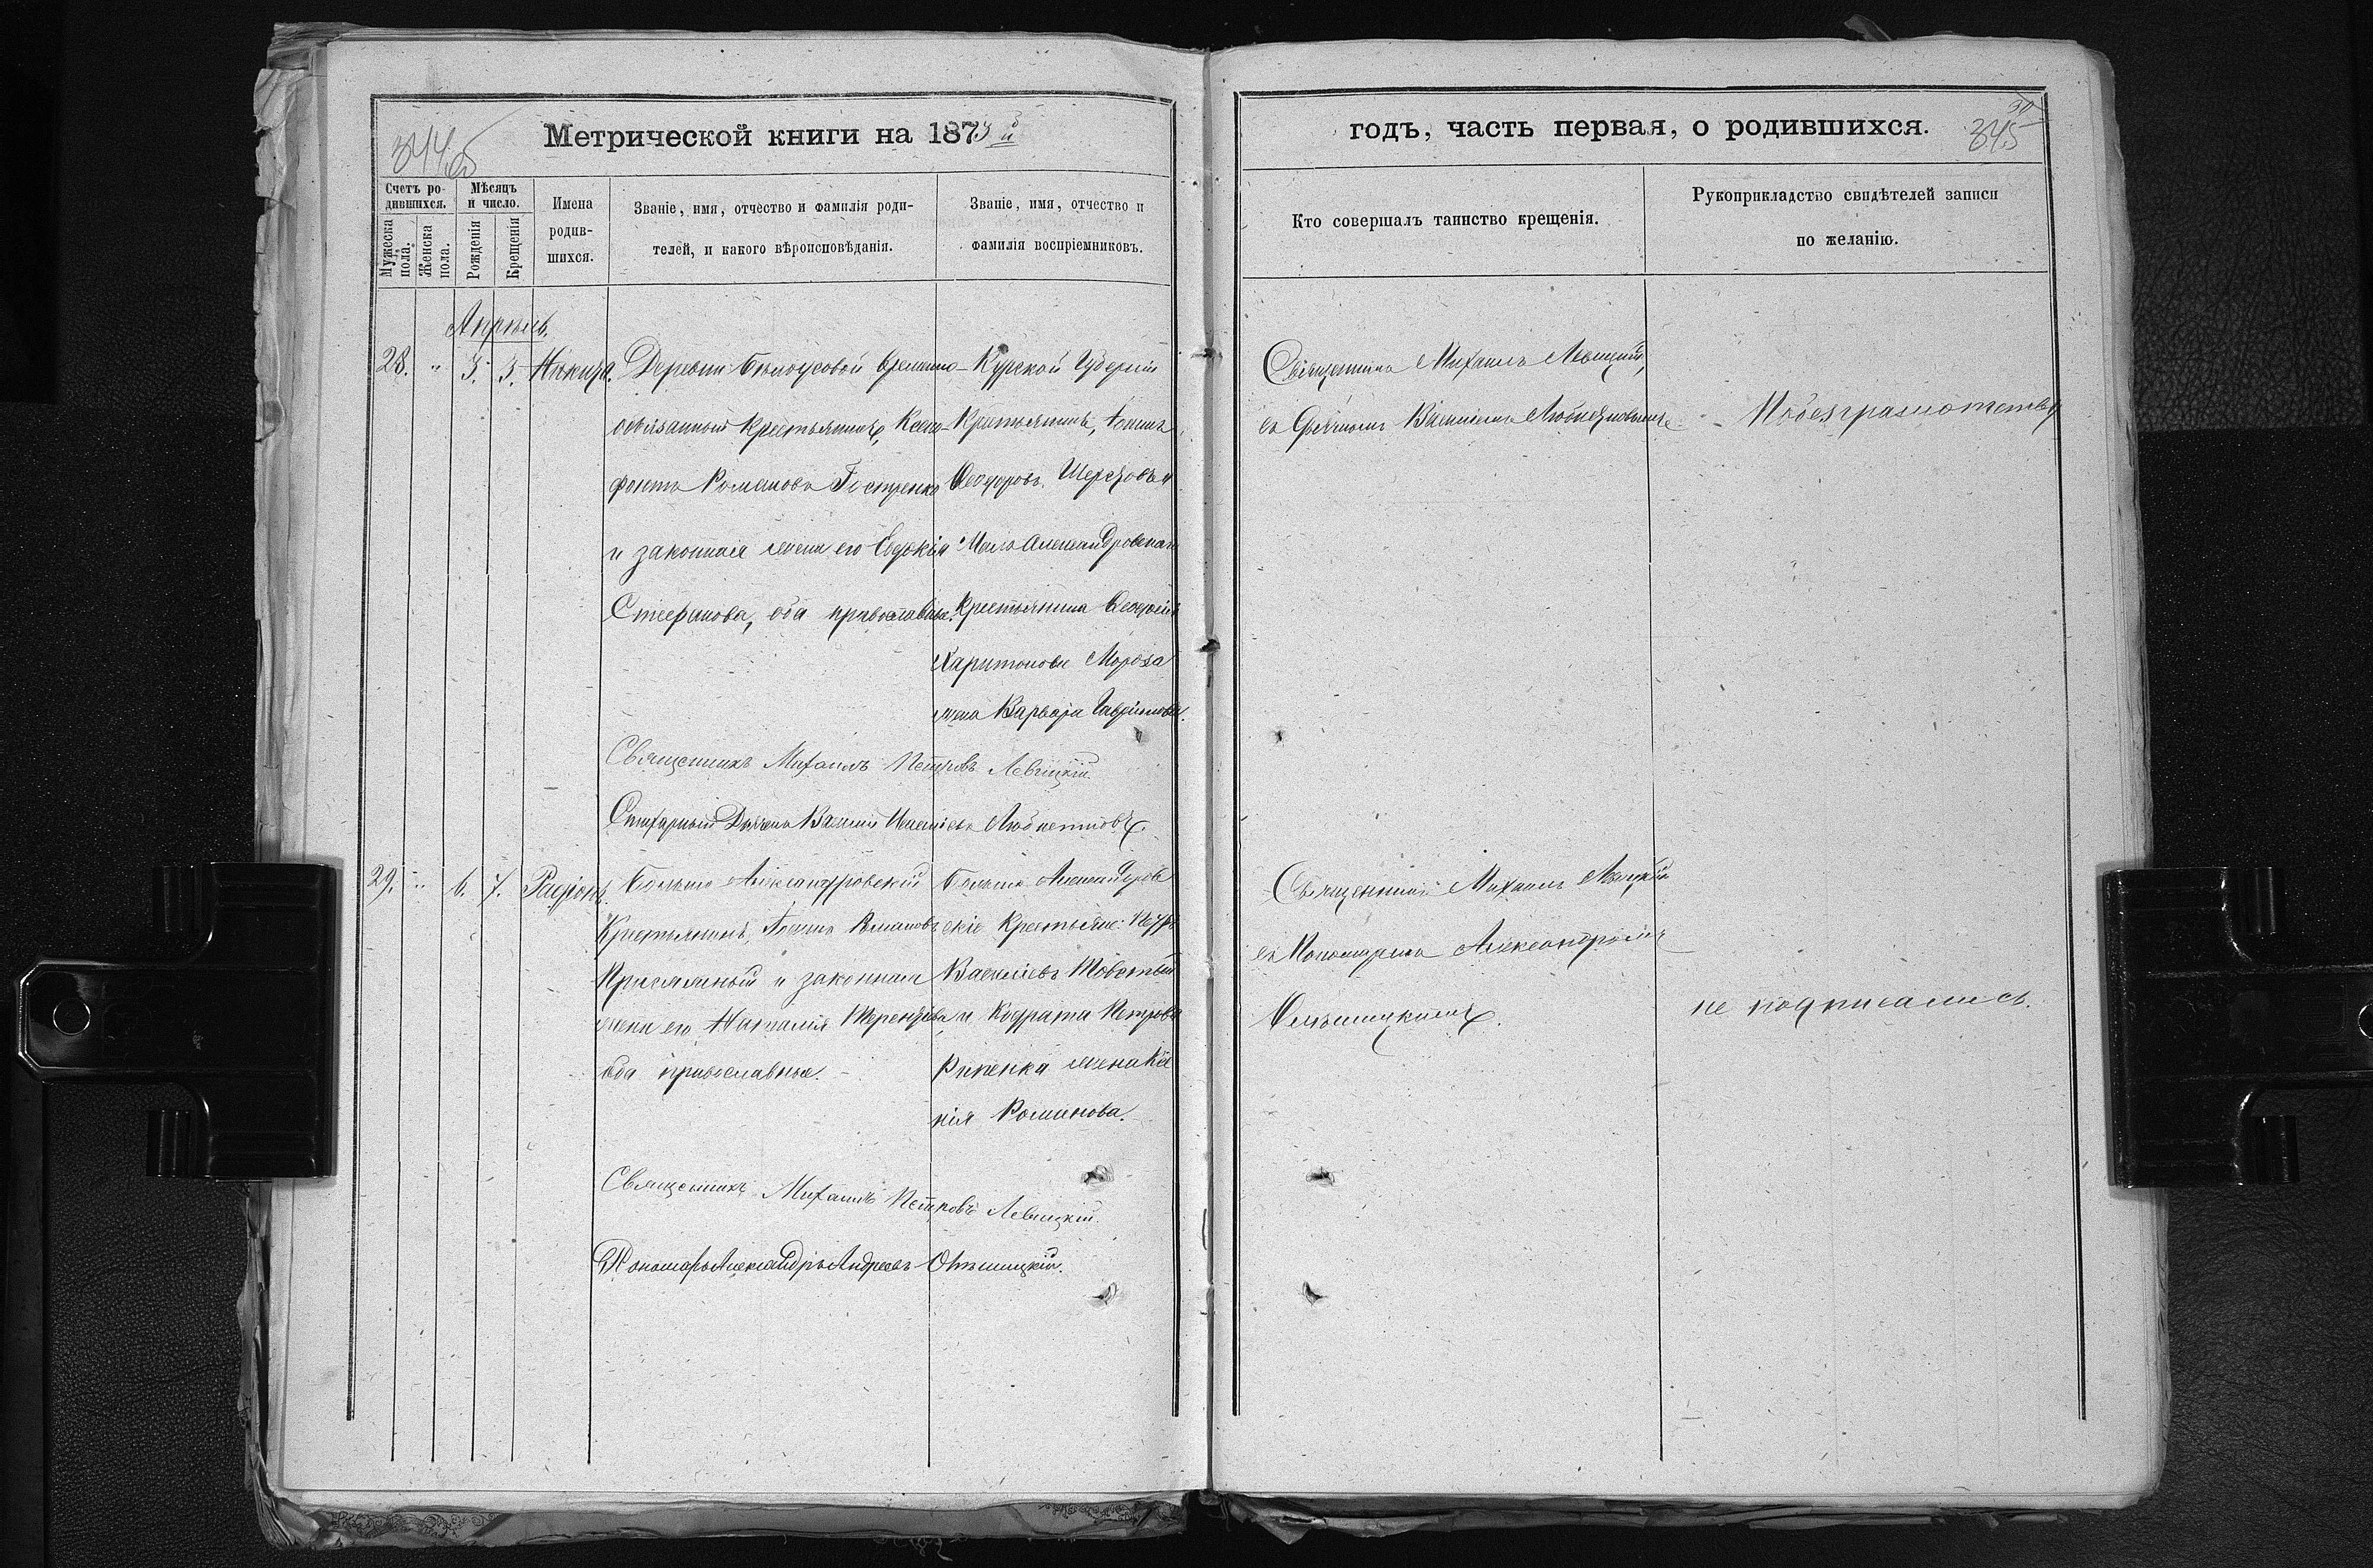 Метрической книги на 1873й
344
Счетъ родившихся.
Мужеска пола.
Женска пола.
Мѣсяцъ и число.
Рожденія
Крещенія
Имена
родив-
шихся.
Званіе, имя, отчество и фамилія роди-
телей, и какого вѣроисповѣданія.
Званіе, имя, отчество и
фамилія воспріемниковъ.
Апрѣль.
28. " 3. 3. Никита.
Деревни Бѣлоусовой временно-
обязанный Крестьянинъ, Ксено-
фонтъ Романовъ
и законная жена его Евдокія
Стефанова, оба православные.
Курской Губерніи
Крестьянинъ,
Ѳеодоровъ и
Мало Александровскаго
Крестьянина
Харитонова Мороза
жена Варвара Гавриилова.
Священникъ Михаилъ Петровъ Левицкій.
Стихарный Дьячекъ Василій
29. " 6. 7. Радіонъ.
Больше Александровскій
Крестьянинъ, Романовъ
и законная
жена его Наталія Терентіева
оба православные.
Больше Александров-
скіе Крестьяне: Петръ
Василіевъ Товстый
и Кодрата Петрова
Рипенка жена Ксе-
нія Романова.
Священникъ Михаилъ Петровъ Левицкій.
Пономарь Александръ Андреевъ
годъ, часть первая, о родившихся.
345
Кто совершалъ таинство крещенія.
Рукоприкладство свидѣтелей записи
по желанію.
Священникъ Михаилъ Левицкій,
съ Дьячкомъ Василіемъ
По безграмотству
Священникъ Михаилъ Левицкій
съ Пономаремъ Александромъ
не подписались.